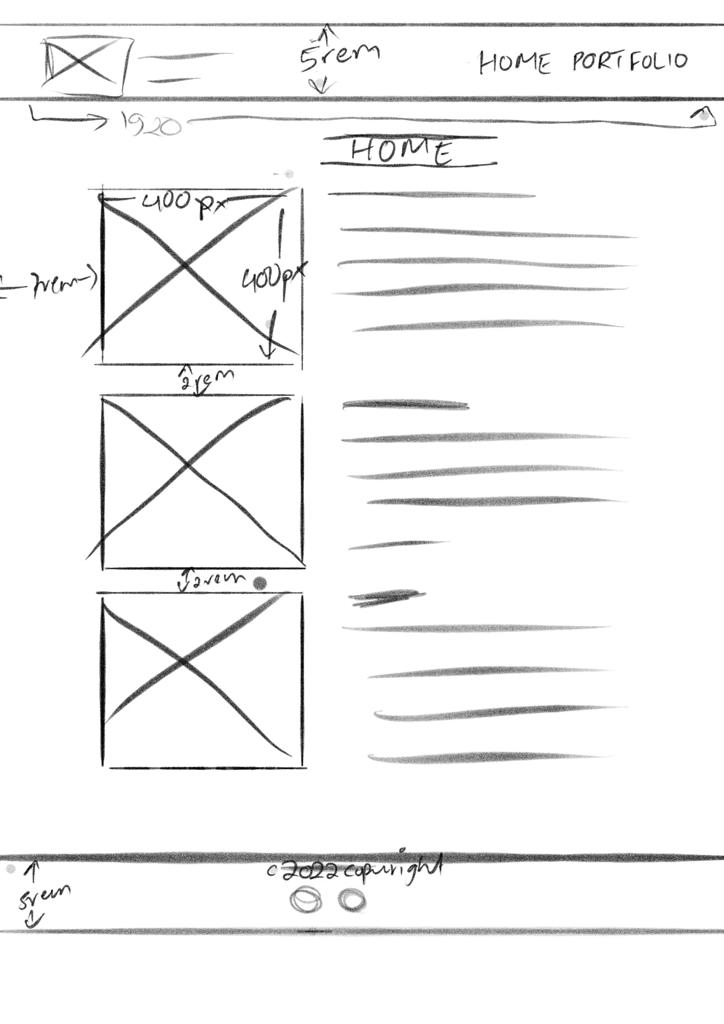 5rem
HOME PORTFOLIO
1920
HOME
400px
400px
7rem
2rem
2rem
c 2022 copyright
5rem